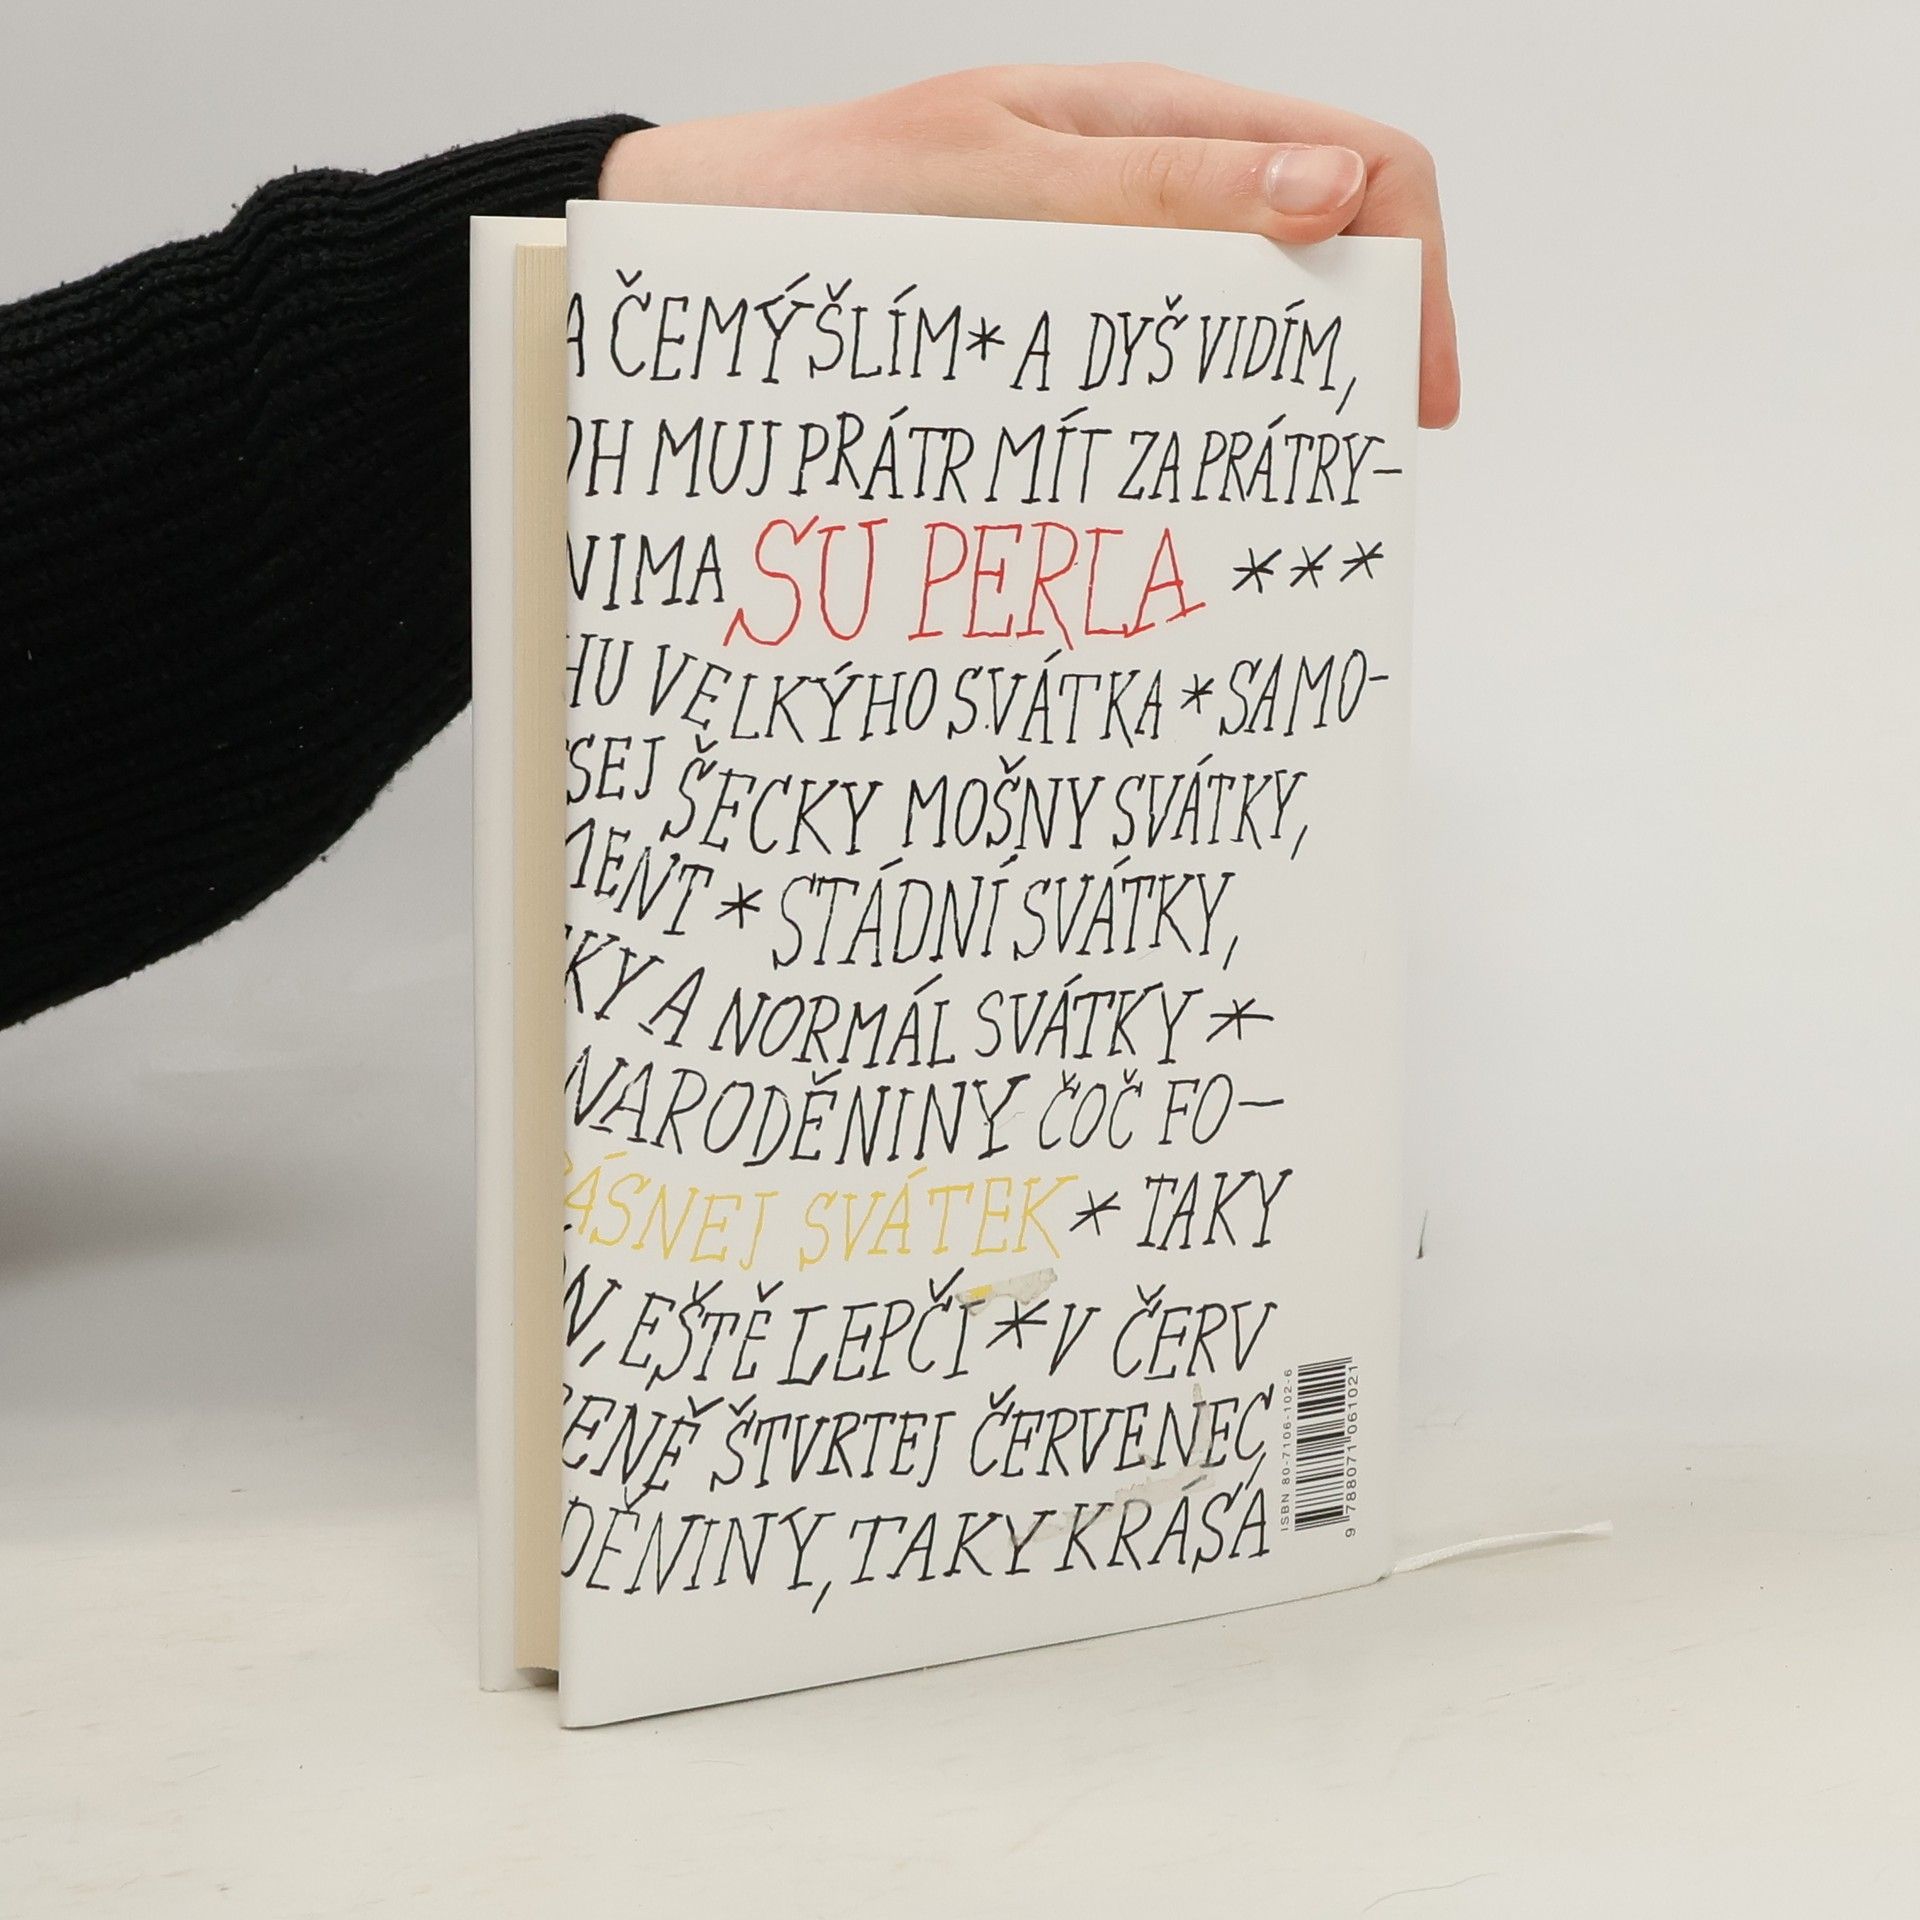 A ČEMÝŠLÍM * A DYŠ VIDÍM,
OH MUJ PRÁTR MÍT ZA PRÁTRY–
NIMA SU PERLA ***
HU VELKÝHO SVÁTKA * SAMO–
SEJ ŠECKY MOŠNY SVÁTKY,
MENT * STÁDNÍ SVÁTKY,
KY A NORMÁL SVÁTKY *
NARODĚNINY ČOČ FO–
ÁSNEJ SVÁTEK * TAKY
N, EŠTĚ LEPČÍ * V ČERV
ENĚ ŠTVRTEJ ČERVENEC
DĚNINY, TAKY KRÁSÁ
ISBN 80-7106-102-6
9 788071 061021